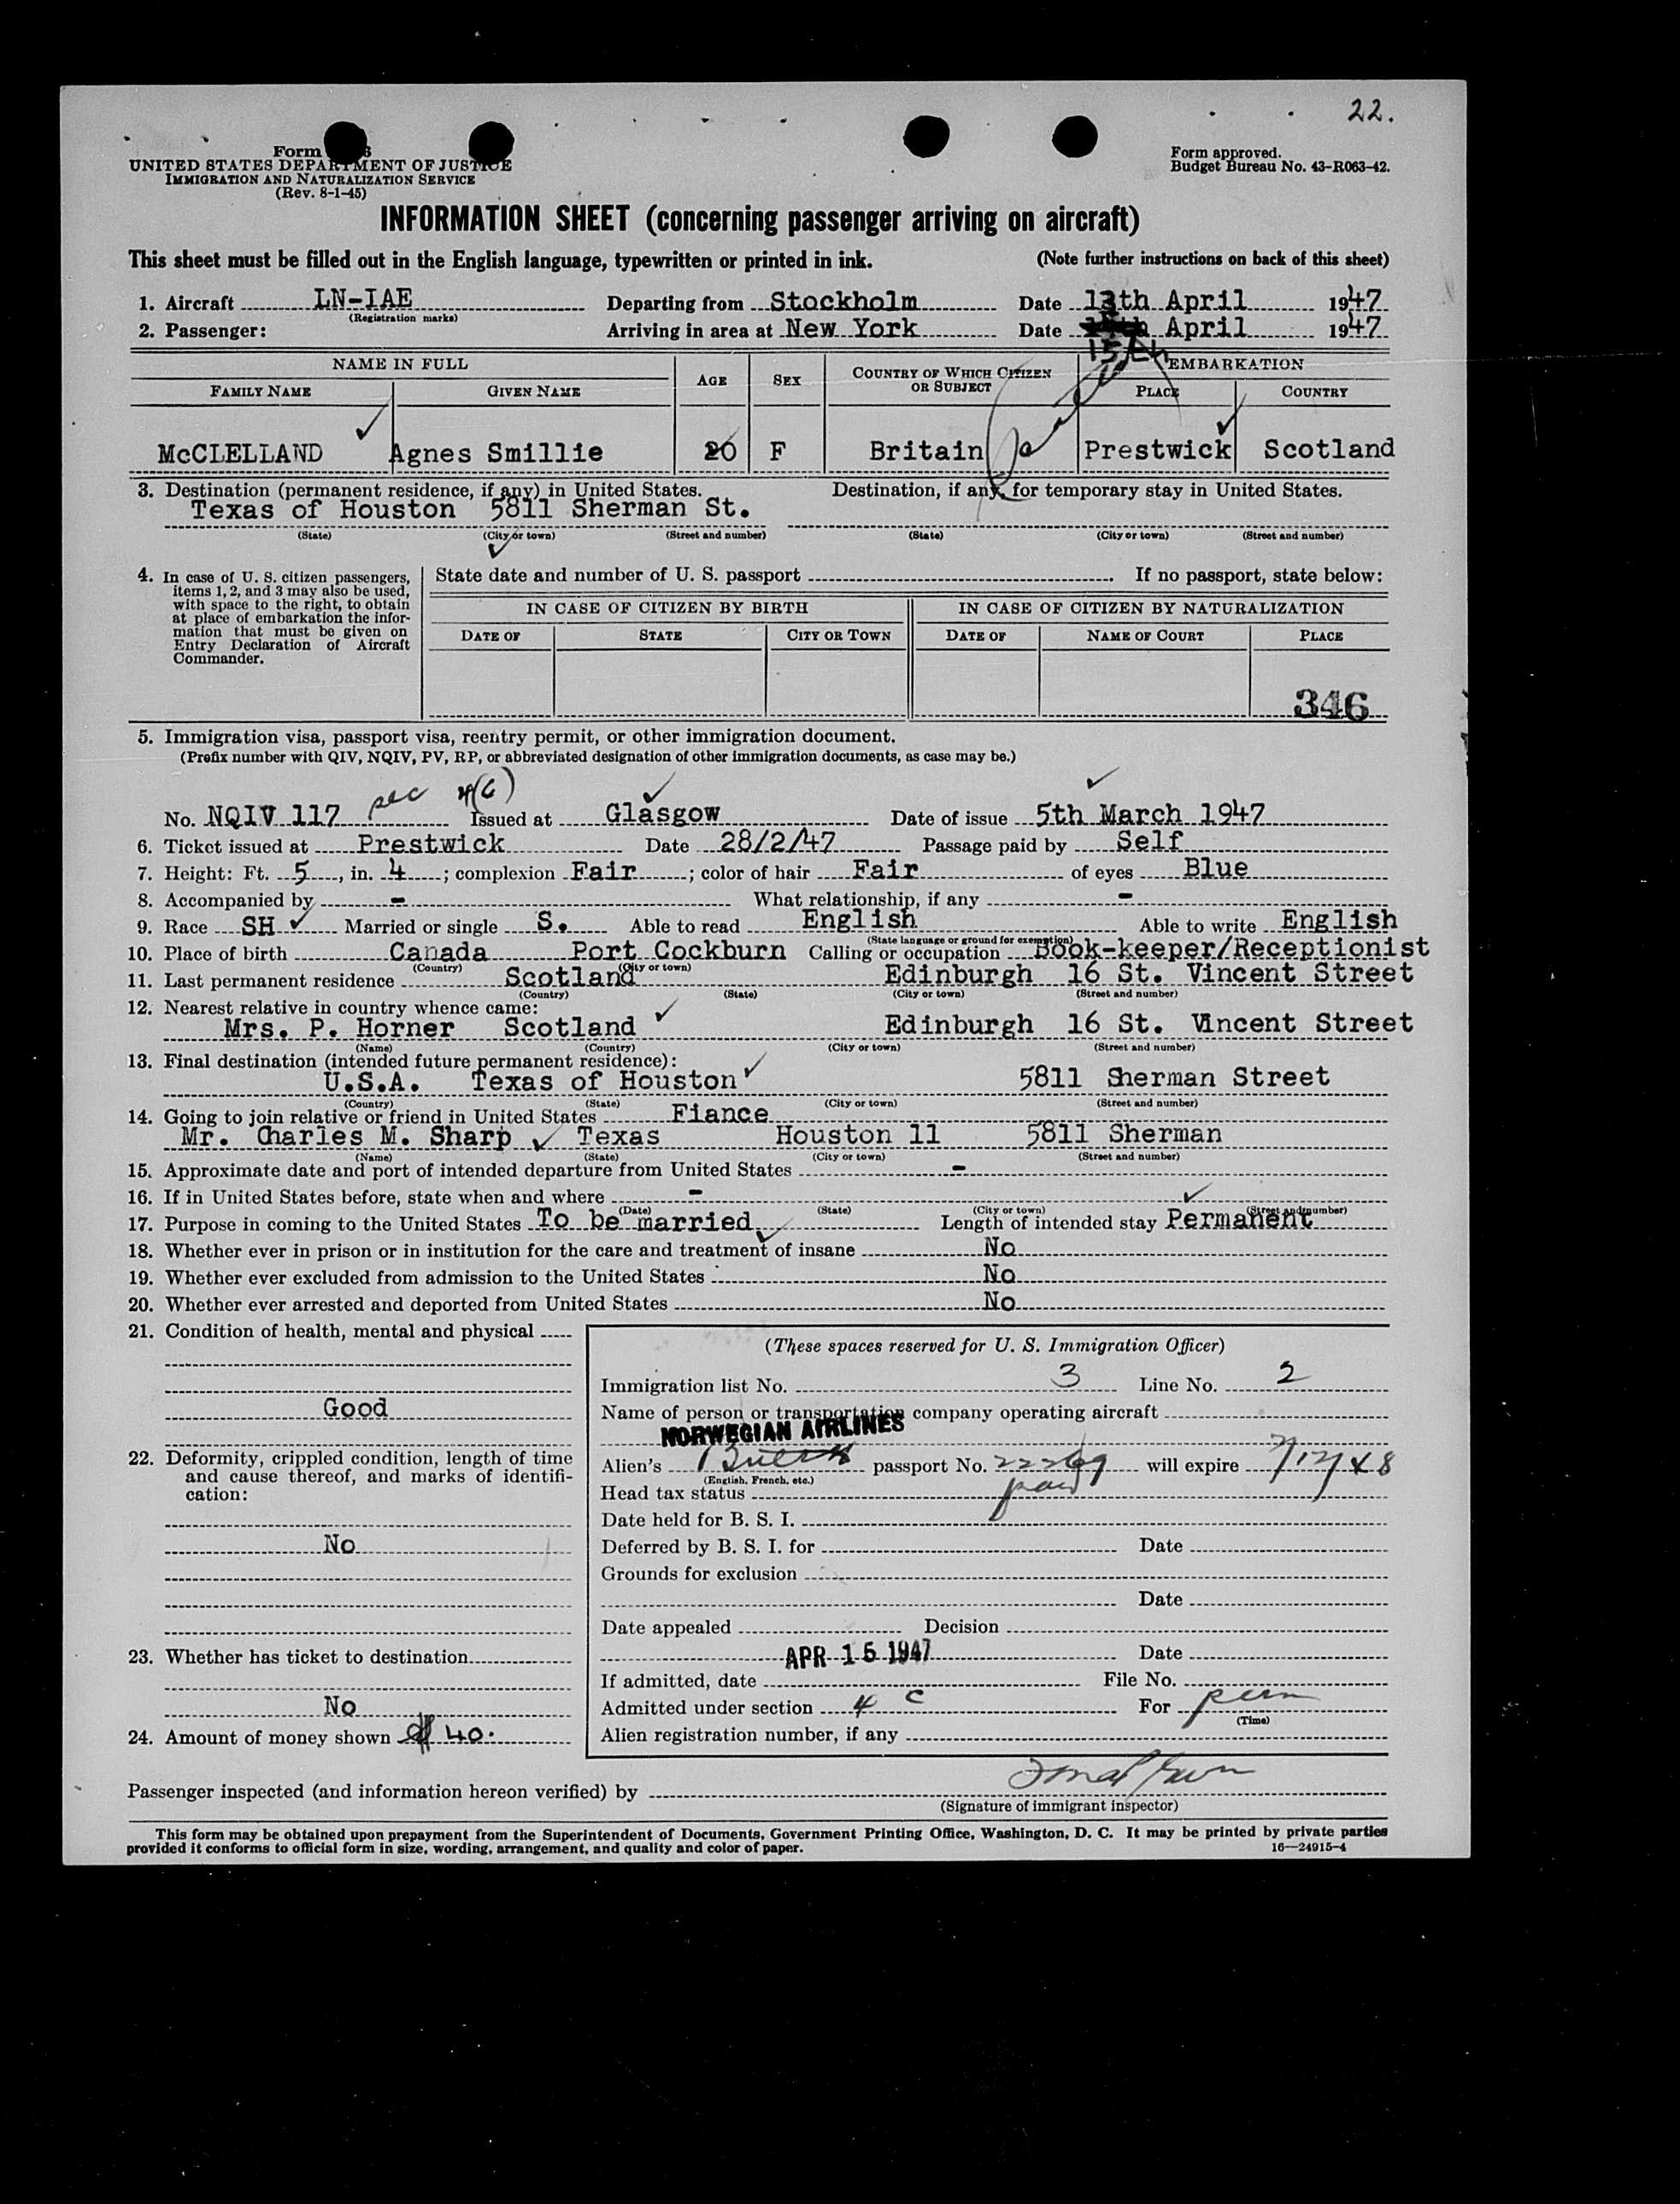 22.
Form
UNITED STATES DEPARTMENT OF JUSTICE
IMMIGRATION AND NATURALIZATION SERVICE
(Rev. 8-1-45)
Form approved.
Budget Bureau No. 43-R063-42.
INFORMATION SHEET (concerning passenger arriving on aircraft)
This sheet must be filled out in the English language, typewritten or printed in ink. (Note further instructions on back of this sheet)
1. Aircraft LN-IAE Departing from Stockholm Date 13th April 1947
(Registration marks)
2. Passenger: Arriving in area at New York Date April 1947
15th
NAME IN FULL AGE SEX COUNTRY OF WHICH CITIZEN OR SUBJECT EMBARKATION
FAMILY NAME GIVEN NAME PLACE COUNTRY
McCLELLAND Agnes Smillie 20 F Britain Prestwick Scotland
3. Destination (permanent residence, if any) in United States. Destination, if any, for temporary stay in United States.
Texas of Houston 5811 Sherman St.
(State) (City or town) (Street and number) (State) (City or town) (Street and number)
4. In case of U. S. citizen passengers, items 1, 2, and 3 may also be used, with space to the right, to obtain at place of embarkation the information that must be given on Entry Declaration of Aircraft Commander.
State date and number of U. S. passport . If no passport, state below:
IN CASE OF CITIZEN BY BIRTH IN CASE OF CITIZEN BY NATURALIZATION
DATE OF STATE CITY OR TOWN DATE OF NAME OF COURT PLACE
346
5. Immigration visa, passport visa, reentry permit, or other immigration document.
(Prefix number with QIV, NQIV, PV, RP, or abbreviated designation of other immigration documents, as case may be.)
sec 4(C)
No. NQIV 117 Issued at Glasgow Date of issue 5th March 1947
6. Ticket issued at Prestwick Date 28/2/47 Passage paid by Self
7. Height: Ft. 5, in. 4; complexion Fair; color of hair Fair of eyes Blue
8. Accompanied by - What relationship, if any -
9. Race SH Married or single S. Able to read English Able to write English
(State language or ground for exemption)
10. Place of birth Canada Port Cockburn Calling or occupation Book-keeper/Receptionist
(Country) (City or town)
11. Last permanent residence Scotland Edinburgh 16 St. Vincent Street
(Country) (State) (City or town) (Street and number)
12. Nearest relative in country whence came:
Mrs. P. Horner Scotland Edinburgh 16 St. Vincent Street
(Name) (Country) (City or town) (Street and number)
13. Final destination (intended future permanent residence):
U.S.A. Texas of Houston 5811 Sherman Street
(Country) (State) (City or town) (Street and number)
14. Going to join relative or friend in United States Fiance
Mr. Charles M. Sharp Texas Houston 11 5811 Sherman
(Name) (State) (City or town) (Street and number)
15. Approximate date and port of intended departure from United States -
16. If in United States before, state when and where -
(Date) (State) (City or town) (Street and number)
17. Purpose in coming to the United States To be married Length of intended stay Permanent
18. Whether ever in prison or in institution for the care and treatment of insane No
19. Whether ever excluded from admission to the United States No
20. Whether ever arrested and deported from United States No
21. Condition of health, mental and physical
Good
22. Deformity, crippled condition, length of time and cause thereof, and marks of identification:
No
23. Whether has ticket to destination
No
24. Amount of money shown $ 40.
(These spaces reserved for U. S. Immigration Officer)
Immigration list No. 3 Line No. 2
Name of person or transportation company operating aircraft
NORWEGIAN AIRLINES
Alien's passport No. 22269 will expire 7/12/48
(English, French, etc.)
Head tax status paid
Date held for B. S. I.
Deferred by B. S. I. for Date
Grounds for exclusion
Date
Date appealed Decision
APR 15 1947 Date
If admitted, date File No.
Admitted under section 4 C For perm
(Time)
Alien registration number, if any
Passenger inspected (and information hereon verified) by
(Signature of immigrant inspector)
This form may be obtained upon prepayment from the Superintendent of Documents, Government Printing Office, Washington, D. C. It may be printed by private parties
provided it conforms to official form in size, wording, arrangement, and quality and color of paper. 16—24915-4